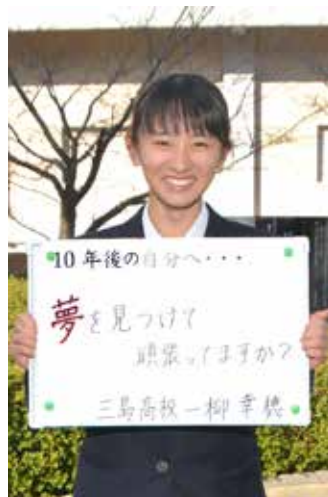 10年後の自分へ・・・
夢を見つけて
頑張ってますか?
三島高校 一柳 幸穂